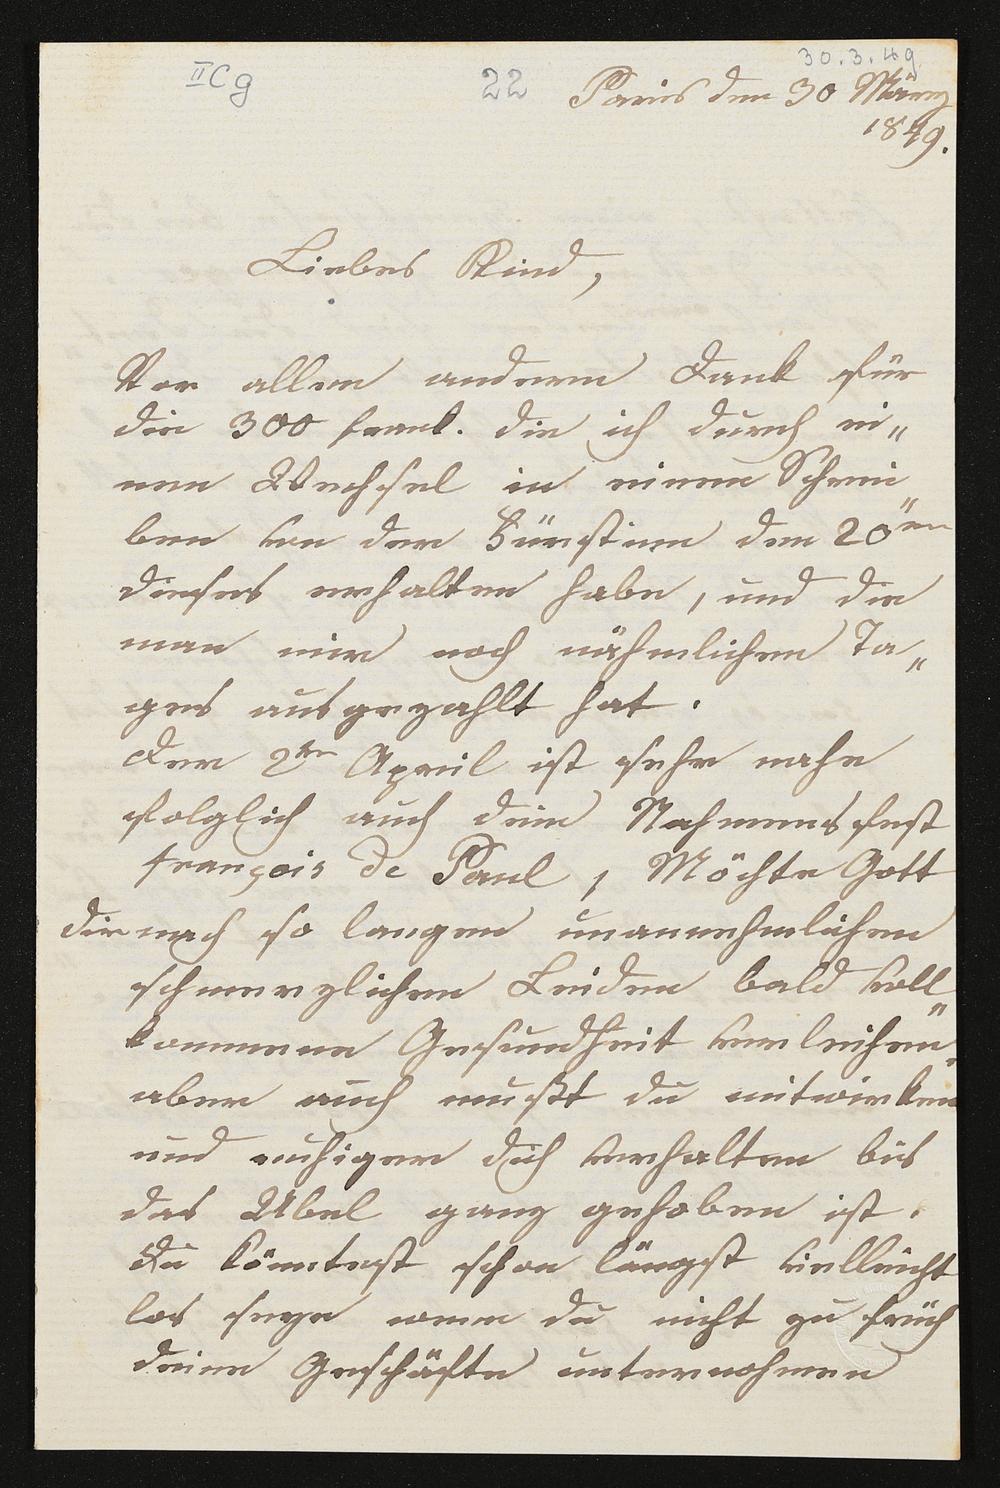 30.3.49
IICg 22 Paris den 30 März
1849.
Liebes Kind,
Vor allem anderm Dank für
die 300 frank. die ich durch ei„
nen Wechsel in einem Schrei„
ben von der Fürstinn den 20ten
dieses erhalten habe, und die
man mir noch nähmlichen Ta„
ges ausgezahlt hat.
Der 2te April ist sehr nahe
folglich auch dein Nahmensfest
françois de Paul, Möchte Gott
dir nach so langen unannehmlichen
schmerzlichen Leiden bald voll„
kommene Gesundheit verleihen,
aber auch mußt du mitwirken
und ruhiger dich verhalten bis
das Übel ganz gehoben ist.
Du könntest schon längst vielleicht
los seyn wenn du nicht zu früh
deine Geschäfte unternohmen